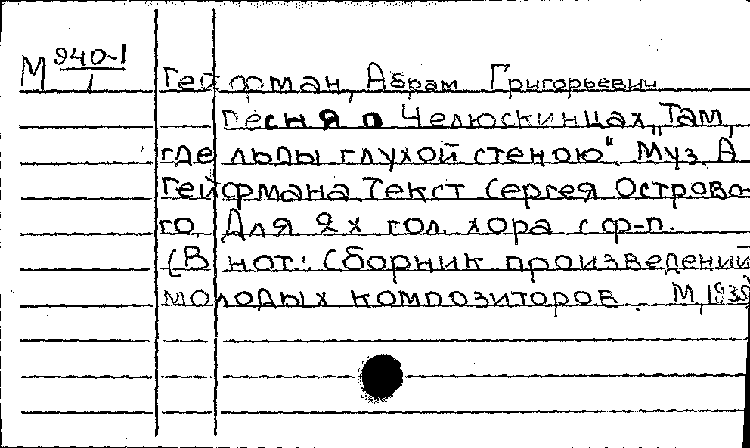 М 940-1/1
Гейфман, Абрам Григорьевич
Песня о Челюскинцах „Там,
где льды глухой стеною". Муз. А.
Гейфмана. Текст Сергея Острово-
го. Для 2х гол. хора с ф-п.
(В нот.: Сборник произведений
молодых композиторов. М.,